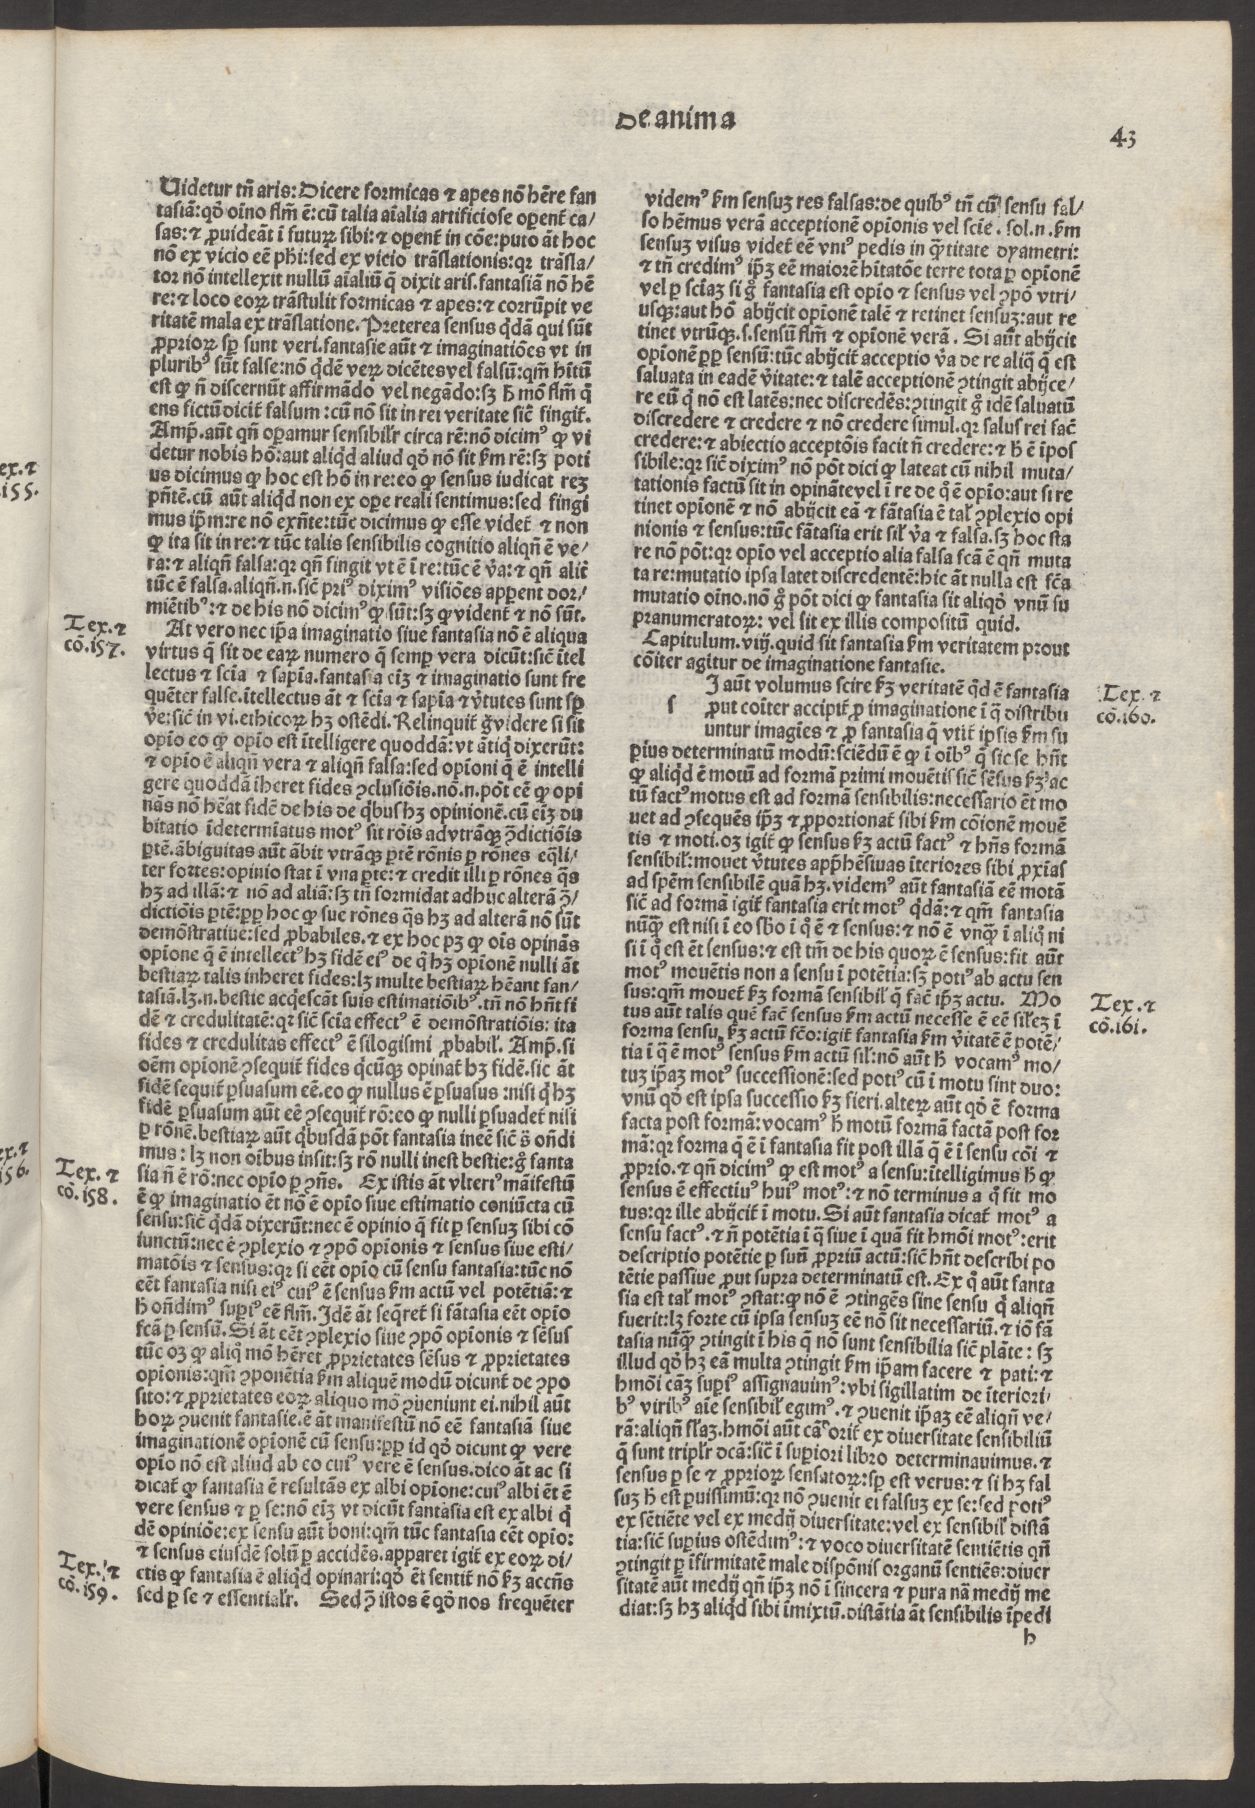 De anima
43
Uidetur tn̄ aris: Dicere formicas ⁊ apes nō hēre fan
tasiā: qd̓ oīno flm̄ ē: cū talia aīalia artificiose opent ca/
sas: ⁊ ꝓuideāt ī futurꝝ sibi: ⁊ opent in cōe: puto āt hoc
nō ex vicio eē phi: sed ex vicio trāslationis: qꝛ trāsla/
tor nō intellexit nullū aīaliū q̄ dixit aris. fantasiā nō hē
re: ⁊ loco eorꝝ trāstulit formicas ⁊ apes: ⁊ corrūpit ve
ritatē mala ex trāslatione. Preterea sensus qd̄ā qui sūt
ꝓpriorꝝ sꝑ sunt veri. fantasie aūt ⁊ imaginatiōes vt in
pluribꝰ sūt false: nō qd̄ē verꝝ dicētes vel falsū: qm̄ hītū
est ꝙ n̄ discernūt affirmādo vel negādo: sꝫ h̄ mō flm̄ q̄
ens fictū dicit falsum: cū nō sit in rei veritate sic̄ fingit.
Ampl̓. aūt qn̄ opamur sensibilr̓ circa rē: nō dicimꝰ ꝙ vi
detur nobis hō: aut aliqd̓ aliud qd̓ nō sit ẜm rē: sꝫ poti
us dicimus ꝙ hoc est hō in re: eo ꝙ sensus iudicat reꝫ
pn̄tē. cū aūt aliqd̓ non ex ope reali sentimus: sed fingi
mus ip̄m: re nō exn̄te: tūc dicimus ꝙ esse videt ⁊ non
ꝙ ita sit in re: ⁊ tūc talis sensibilis cognitio aliqn̄ ē ve/
ra: ⁊ aliqn̄ falsa: qꝛ qn̄ fingit vt ē ī re: tūc ē v̓a: ⁊ qn̄ alit̓
tūc ē falsa. aliqn̄. n̄. sic̄ priꝰ diximꝰ visiōes apparent dor/
miētibꝰ: ⁊ de his nō dicimꝰ ꝙ sūt: sꝫ ꝙ vident ⁊ nō sūt.
At vero nec ip̄a imaginatio siue fantasia nō ē aliqua
virtus q̄ sit de earꝝ numero q̄ semꝑ vera dicūt: sic̄ ītel
lectus ⁊ scīa ⁊ sapīa. fantasia eīꝫ ⁊ imaginatio sunt fre
quēter false. ītellectus āt ⁊ scīa ⁊ sapīa ⁊ v̓tutes sunt sꝑ
v̓e: sic̄ in vi. ethicorꝝ hꝫ ostēdi. Relinquit g̓ videre si sit
opīo eo ꝙ opīo est ītelligere quoddā: vt ātiq̄ dixerūt:
⁊ opīo ē aliqn̄ vera ⁊ aliqn̄ falsa: sed opīoni q̄ ē intelli
gere quoddā īheret fides ꝯclusiōis. nō. n. pōt eē ꝙ opi
nās nō hēat fidē de his de qbus hꝫ opinionē. cū eīꝫ du
bitatio īdetermīatus motꝰ sit rōis ad vtrāqꝫ ꝯ̄dictiōis
ꝑtē. ābiguitas aūt ābit vtrāqꝫ ꝑtē rōnis ꝑ rōnes eq̄li/
ter fortes: opinio stat ī vna ꝑte: ⁊ credit illi ꝑ rōnes q̄s
hꝫ ad illā: ⁊ nō ad aliā: sꝫ tn̄ formidat adhuc alterā ꝯ̄/
dictiōis ꝑtē: ꝓp hoc ꝙ sue rōnes q̄s hꝫ ad alterā nō sūt
demōstratiue: sed ꝓbabiles. ⁊ ex hoc pꝫ ꝙ oīs opināS
opīone q̄ ē intellectꝰ hꝫ fidē eiꝰ de q̄ hꝫ opīonē nulli āt
bestiarꝝ talis inheret fides: lꝫ multe bestiarꝝ hēant fan/
tasiā. lꝫ. n. bestie acq̄escāt suis estimatiōibꝰ. tn̄ nō hn̄t fi
dē ⁊ credulitatē: qꝛ sic̄ scīa effectꝰ ē demōstratiōis: ita
fides ⁊ credulitas effectꝰ ē silogismi ꝓbabil̓. Ampl̓. si
oēm opīonē ꝯsequit fides qcūqꝫ opinat hꝫ fidē. sic āt
fidē sequit ꝑsuasum eē. eo ꝙ nullus ē ꝑsuasus: nisi q̓ hꝫ
fidē ꝑsuasum aūt eē ꝯsequit rō: eo ꝙ nulli ꝑsuadet nisi
ꝑ rōnē. bestiarꝝ aūt qbusdā pōt fantasia ineē sic̄ s̄ on̄di
mus: lꝫ non oībus insit: sꝫ rō nulli inest bestie: g̓ fanta
sia n̄ ē rō: nec opīo ꝑ ꝯn̄s. Ex istis āt vlteriꝰ māifestū
ē ꝙ imaginatio ēt nō ē opīo siue estimatio coniūcta cū
sensu: sic̄ qd̄ā dixerūt: nec ē opinio q̄ fit ꝑ sensuꝫ sibi cō
iunctū: nec ē ꝯplexio ⁊ ꝯpō opīonis ⁊ sensus siue esti/
matōis ⁊ sensus: qꝛ si eēt opīo cū sensu fantasia: tūc nō
eēt fantasia nisi eiꝰ cuiꝰ ē sensus ẜm actū vel potētiā: ⁊
h̄ on̄dimꝰ supiꝰ eē flm̄. Idē āt seq̄ret si fātasia eēt opīo
fcā ꝑ sensū. Si āt eēt ꝯplexio siue ꝯpō opīonis ⁊ sēsus
tūc oꝫ ꝙ aliq̄ mō hēret ꝓprietates sēsus ⁊ ꝓprietates
opīonis: qm̄ ꝯponētia ẜm aliquē modū dicunt de ꝯpo
sito: ⁊ ꝓprietates eorꝝ aliquo mō ꝯueniunt ei. nihil aūt
horꝝ ꝯuenit fantasie. ē āt manifestū nō eē fantasiā siue
imaginationē opīonē cū sensu: ꝓp id qd̓ dicunt ꝙ vere
opīo nō est aliud ab eo cuiꝰ vere ē sensus. dico āt ac si
dicat ꝙ fantasia ē resultās ex albi opīone: cuiꝰ albi ēt ē
vere sensus ⁊ ꝑ se: nō eīꝫ vt dicūt fantasia est ex albi q̓
dē opiniōe: ex sensu aūt boni: qm̄ tūc fantasia eēt opīo:
⁊ sensus eiusdē solū ꝑ accidēs. apparet igit ex eorꝝ di/
ctis ꝙ fantasia ē aliqd̓ opinari: qd̓ ēt sentit nō ẜꝫ accn̄s
sed ꝑ se ⁊ essentialr̓. Sed ꝯ̄ istos ē qd̓ nos frequēter
Tex. ⁊
cō. 157.
Tex. ⁊
cō. 158.
Tex. ⁊
cō. 159.
videmꝰ ẜm sensuꝫ res falsas: de quibꝰ tn̄ cū sensu fal/
so hēmus verā acceptionē opīonis vel scīe. sol. n. ẜm
sensuꝫ visus videt eē vniꝰ pedis in q̄titate dyametri:
⁊ tn̄ credimꝰ ip̄ꝫ eē maiorē hītatōe terre tota ꝑ opīonē
vel ꝑ scīaꝫ si g̓ fantasia est opīo ⁊ sensus vel ꝯpō vtri/
usqꝫ: aut hō abijcit opīonē talē ⁊ retinet sensuꝫ: aut re
tinet vtrūqꝫ. s. sensū flm̄ ⁊ opīonē verā. Si aūt abijcit
opīonē ꝓp sensū: tūc abijcit acceptio v̓a de re aliq̄ q̄ est
saluata in eadē v̓itate: ⁊ talē acceptionē ꝯtingit abijce/
re eū q̓ nō est latēs: nec discredēs: ꝯtingit g̓ idē saluatū
discredere ⁊ credere ⁊ nō credere simul. qꝛ salus rei fac̄
credere: ⁊ abiectio acceptōis facit n̄ credere: ⁊ h̄ ē īpos
sibile: qꝛ sic̄ diximꝰ nō pōt dici ꝙ lateat cū nihil muta/
tationis factū sit in opināte vel ī re de q̓ ē opīo: aut si re
tinet opīonē ⁊ nō abijcit eā ⁊ fātasia ē tal̓ ꝯplexio opi
nionis ⁊ sensus: tūc fātasia erit sil̓ v̓a ⁊ falsa. sꝫ hoc sta
re nō pōt: qꝛ opīo vel acceptio alia falsa fcā ē qn̄ muta
ta re: mutatio ipsa latet discredentē: hic āt nulla est fc̄a
mutatio oīno. nō g̓ pōt dici ꝙ fantasia sit aliqd̓ vnū su
pranumeratorꝝ: vel sit ex illis compositū quid.
Capitulum. viij. quid sit fantasia ẜm veritatem prout
cōiter agitur de imaginatione fantasie.
I aūt volumus scire ẜꝫ veritatē qd̓ ē fantasia
s
ꝓut coīter accipit ꝓ imaginatione ī q̄ distribu
untur imagīes ⁊ ꝓ fantasia q̄ vtit ipsis ẜm su
perius determinatū modū: sciēdū ē ꝙ ī oībꝰ q̄ sic se hn̄t
ꝙ aliqd̓ ē motū ad formā primi mouētis sic̄ sēsus ẜꝫ ac
tū factꝰ motus est ad formā sensibilis: necessario ēt mo
uet ad ꝯsequēs ip̄ꝫ ⁊ ꝓportionat sibi ẜm cōionē mouē
tis ⁊ moti. oꝫ igit ꝙ sensus ẜꝫ actū factꝰ ⁊ hn̄s formā
sensibil̓: mouet v̓tutes app̄hēsiuas īteriores sibi ꝓxīas
ad spēm sensibilē quā hꝫ. videmꝰ aūt fantasiā eē motā
sic̄ ad formā igit fantasia erit motꝰ qd̄ā: ⁊ qm̄ fantasia
nūq̄ est nisi ī eo sb̄o ī q̓ ē ⁊ sensus: ⁊ nō ē vnq̄ ī aliq̓ ni
si ī q̓ est ēt sensus: ⁊ est tm̄ de his quorꝝ ē sensus: fit aūt
motꝰ mouētis non a sensu ī potētia: sꝫ potiꝰ ab actu sen
sus: qm̄ mouet ẜꝫ formā sensibil̓ q̄ fac̄ ip̄ꝫ actu. Mo
tus aūt talis quē fac̄ sensus ẜm actū necesse ē eē sil̓eꝫ ī
forma sensuꝫ ẜꝫ actū fc̄o: igit fantasia ẜm v̓itatē ē potē/
tia ī q̄ ē motꝰ sensus ẜm actū sil̓: nō aūt h̄ vocamꝰ mo/
tuꝫ ip̄aꝫ motꝰ successionē: sed potiꝰ cū ī motu sint duo:
vnū qd̓ est ipsa successio ẜꝫ fieri. alterꝝ aūt qd̓ ē forma
facta post formā: vocamꝰ h̄ motū formā factā post for
mā: qꝛ forma q̄ ē ī fantasia fit post illā q̄ ē ī sensu cōi ⁊
ꝓprio. ⁊ qn̄ dicimꝰ ꝙ est motꝰ a sensu: ītelligimus h̄ ꝙ
sensus ē effectiuꝰ huiꝰ motꝰ: ⁊ nō terminus a q̓ fit mo
tus: qꝛ ille abijcit ī motu. Si aūt fantasia dicat motꝰ a
sensu factꝰ. ⁊ n̄ potētia ī q̄ siue ī quā fit hmōi motꝰ: erit
descriptio potētie ꝑ suū ꝓpriū actū: sic̄ hn̄t describi po
tētie passiue ꝓut supra determinatū est. Ex q̓ aūt fanta
sia est tal̓ motꝰ ꝯstat: ꝙ nō ē ꝯtingēs sine sensu q̓ aliqn̄
fuerit: lꝫ forte cū ipsa sensuꝫ eē nō sit necessariū. ⁊ iō fā
tasia nūq̄ ꝯtingit ī his q̄ nō sunt sensibilia sic̄ plāte: sꝫ
illud qd̓ hꝫ eā multa ꝯtingit ẜm ip̄am facere ⁊ pati: ⁊
hmōi cāꝫ supiꝰ assignauimꝰ: vbi sigillatim de īteriori/
bꝰ viribꝰ aīe sensibil̓ egimꝰ. ⁊ ꝯuenit ip̄aꝫ eē aliqn̄ ve/
rā: aliqn̄ fl̄aꝫ. hmōi aūt cā orit ex diuersitate sensibiliū
q̄ sunt triplr̓ dcā: sic̄ ī supiori libro determinauimus. ⁊
sensus ꝑ se ⁊ ꝓpriorꝝ sensatorꝝ: sꝑ est verus: ⁊ si hꝫ fal
suꝫ h̄ est ꝑuissimū: qꝛ nō ꝯuenit ei falsuꝫ ex se: sed potiꝰ
ex sētiēte vel ex medij diuersitate: vel ex sensibil̓ distā
tia: sic̄ supius ostēdimꝰ: ⁊ voco diuersitatē sentiētis qn̄
ꝯtingit ꝑ īfirmitatē male dispōnis organū sentiēs: diuer
sitatē aūt medij qn̄ ip̄ꝫ nō ī sincera ⁊ pura nā medij me
diat: sꝫ hꝫ aliqd̓ sibi īmixtū. distātia āt sensibilis īpedi
h
Tex. ⁊
cō. 160.
Tex. ⁊
cō. 161.
ex. ⁊
.155.
ex. ⁊
156.